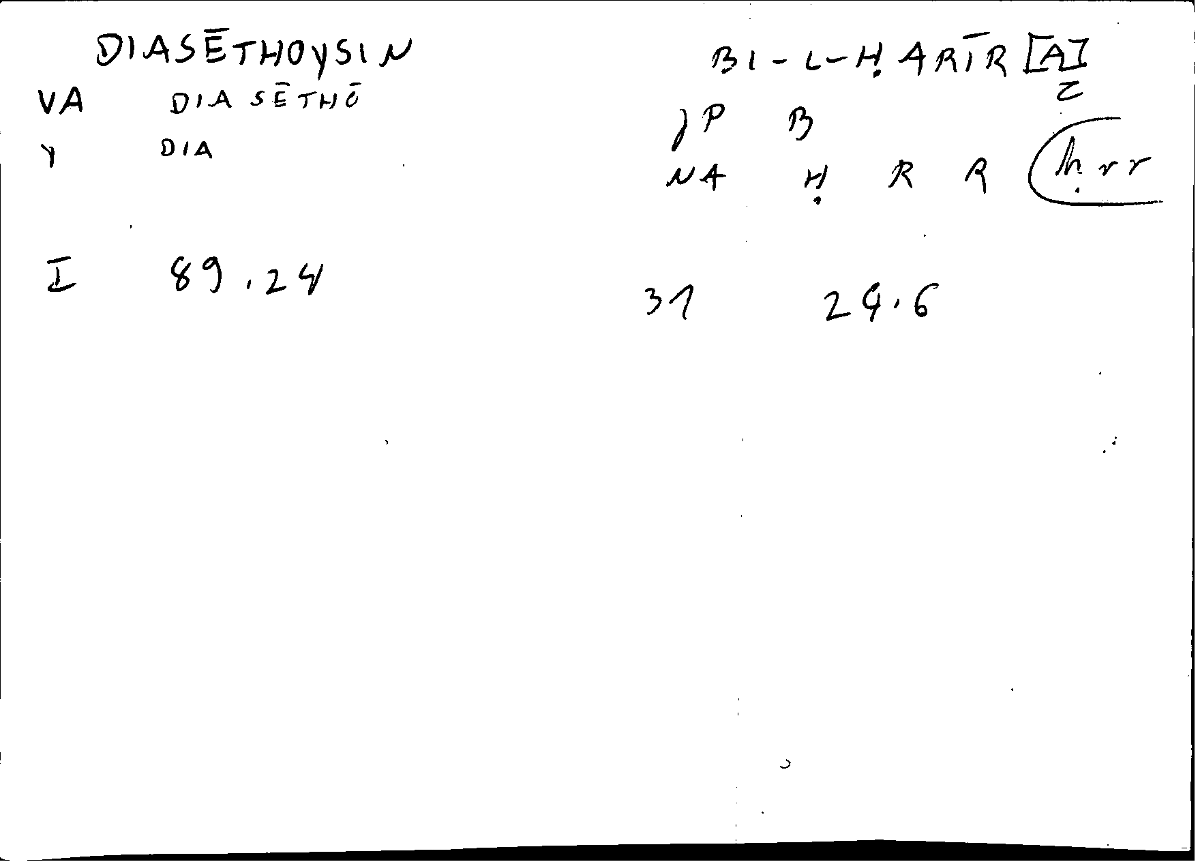 DIASĒTHOYSIN
VA DIASĒTHŌ
γ DIA
I 89.24
BI-L-ḤARĪR[A]
Z
JP B
NA Ḥ R R ḥrr
31 24.6